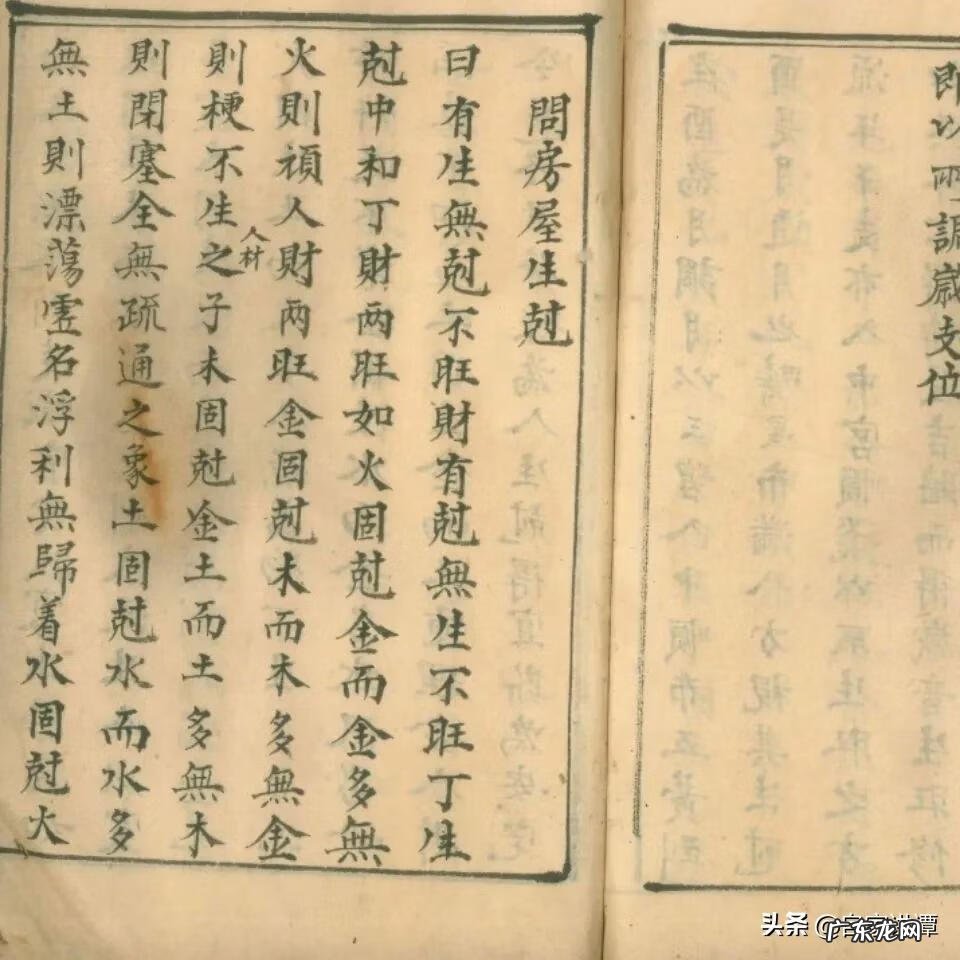 即以所調歲支位
問房屋生尅
曰有生無尅不旺財有尅無生不旺丁生
尅中和丁財两旺如火固尅金而金多無
火則頑人財两旺金固尅木而木多無金
人材
則梗不生之子木固尅金土而土多無木
則閉塞全無疏通之象土固尅水而水多
無土則漂蕩虛名浮利無歸着水固尅火
头条
广东龙网